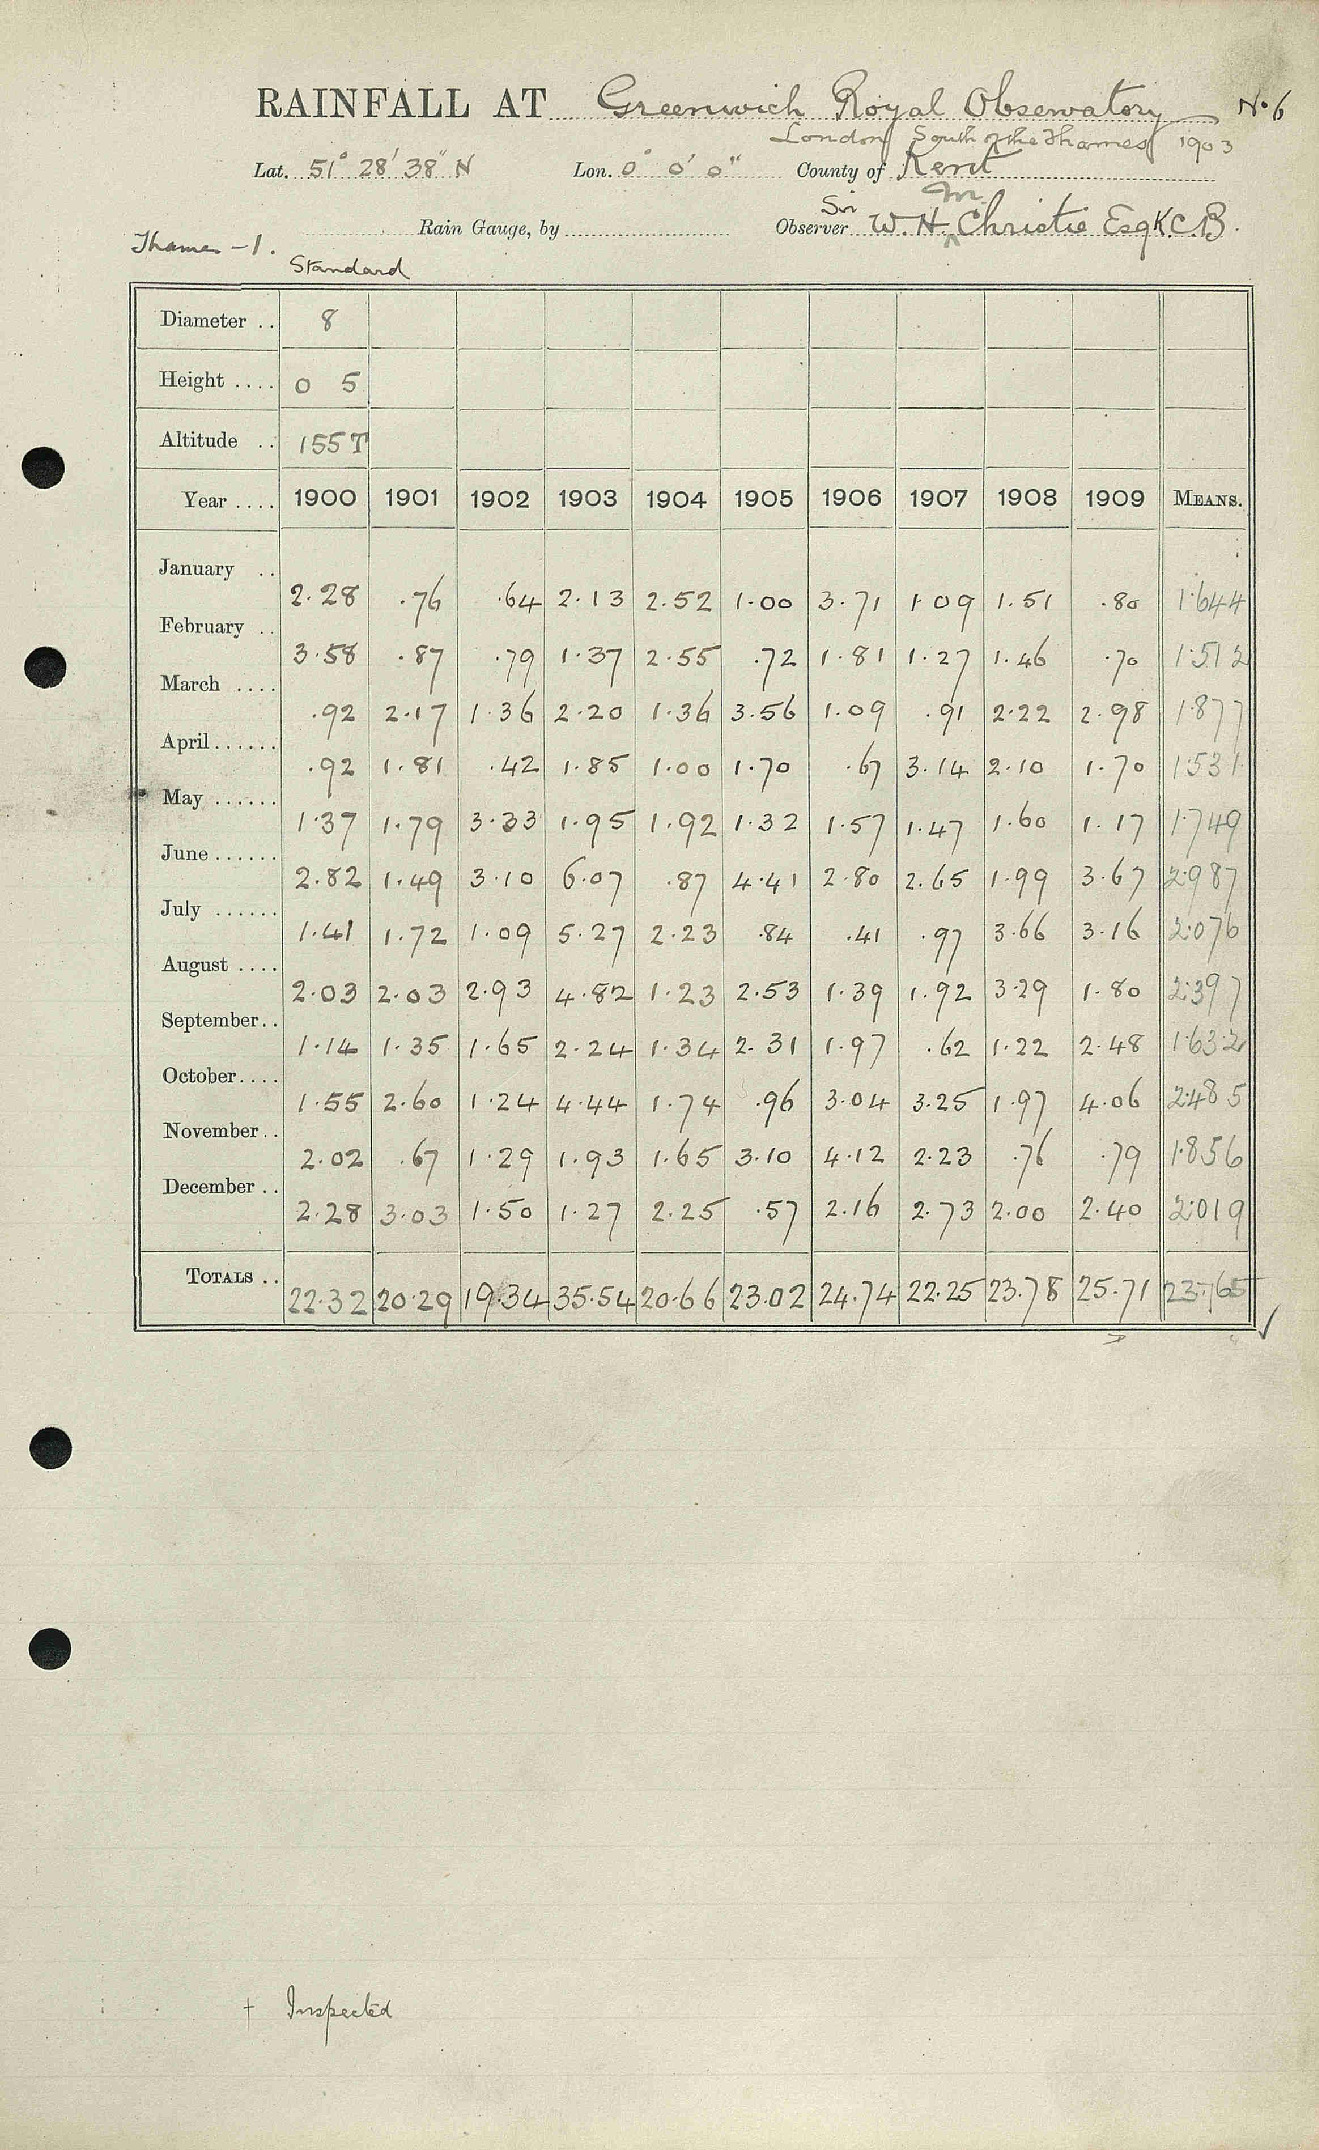 RAINFALL AT Greenwich Royal Observatory No 6
London South of the Thames 1903
Lat. 51° 28' 38" N Lon. 0° 0' 0" County of Kent
Sir
Rain Gauge, by Observer W. H. Christie Esq K.C.B.
Thames -1.
Standard
Diameter .. 8
Height .... 0 5
Altitude .. 155 T
Year .... 1900 1901 1902 1903 1904 1905 1906 1907 1908 1909 MEANS.
January .. 2.28 .76 .64 2.13 2.52 1.00 3.71 1 09 1.51 .80 1.644
February .. 3.58 .87 .79 1.37 2.55 .72 1.81 1.27 1.46 .70 1.512
March .... .92 2.17 1.36 2.20 1.36 3.56 1.09 .91 2.22 2.98 1.877
April...... .92 1.81 .42 1.85 1.00 1.70 .67 3.14 2.10 1.70 1.531
May ...... 1.37 1.79 3.33 1.95 1.92 1.32 1.57 1.47 1.60 1.17 1.749
June...... 2.82 1.49 3.10 6.07 .87 4.41 2.80 2.65 1.99 3.67 2.987
July ...... 1.41 1.72 1.09 5.27 2.23 .84 .41 .97 3.66 3.16 2.076
August .... 2.03 2.03 2.93 4.82 1.23 2.53 1.39 1.92 3.29 1.80 2.397
September.. 1.14 1.35 1.65 2.24 1.34 2.31 1.97 .62 1.22 2.48 1.632
October.... 1.55 2.60 1.24 4.44 1.74 .96 3.04 3.25 1.97 4.06 2.485
November.. 2.02 .67 1.29 1.93 1.65 3.10 4.12 2.23 .76 .79 1.856
December .. 2.28 3.03 1.50 1.27 2.25 .57 2.16 2.73 2.00 2.40 2.019
TOTALS .. 22.32 20.29 19.34 35.54 20.66 23.02 24.74 22.25 23.78 25.71 23.765
† Inspected